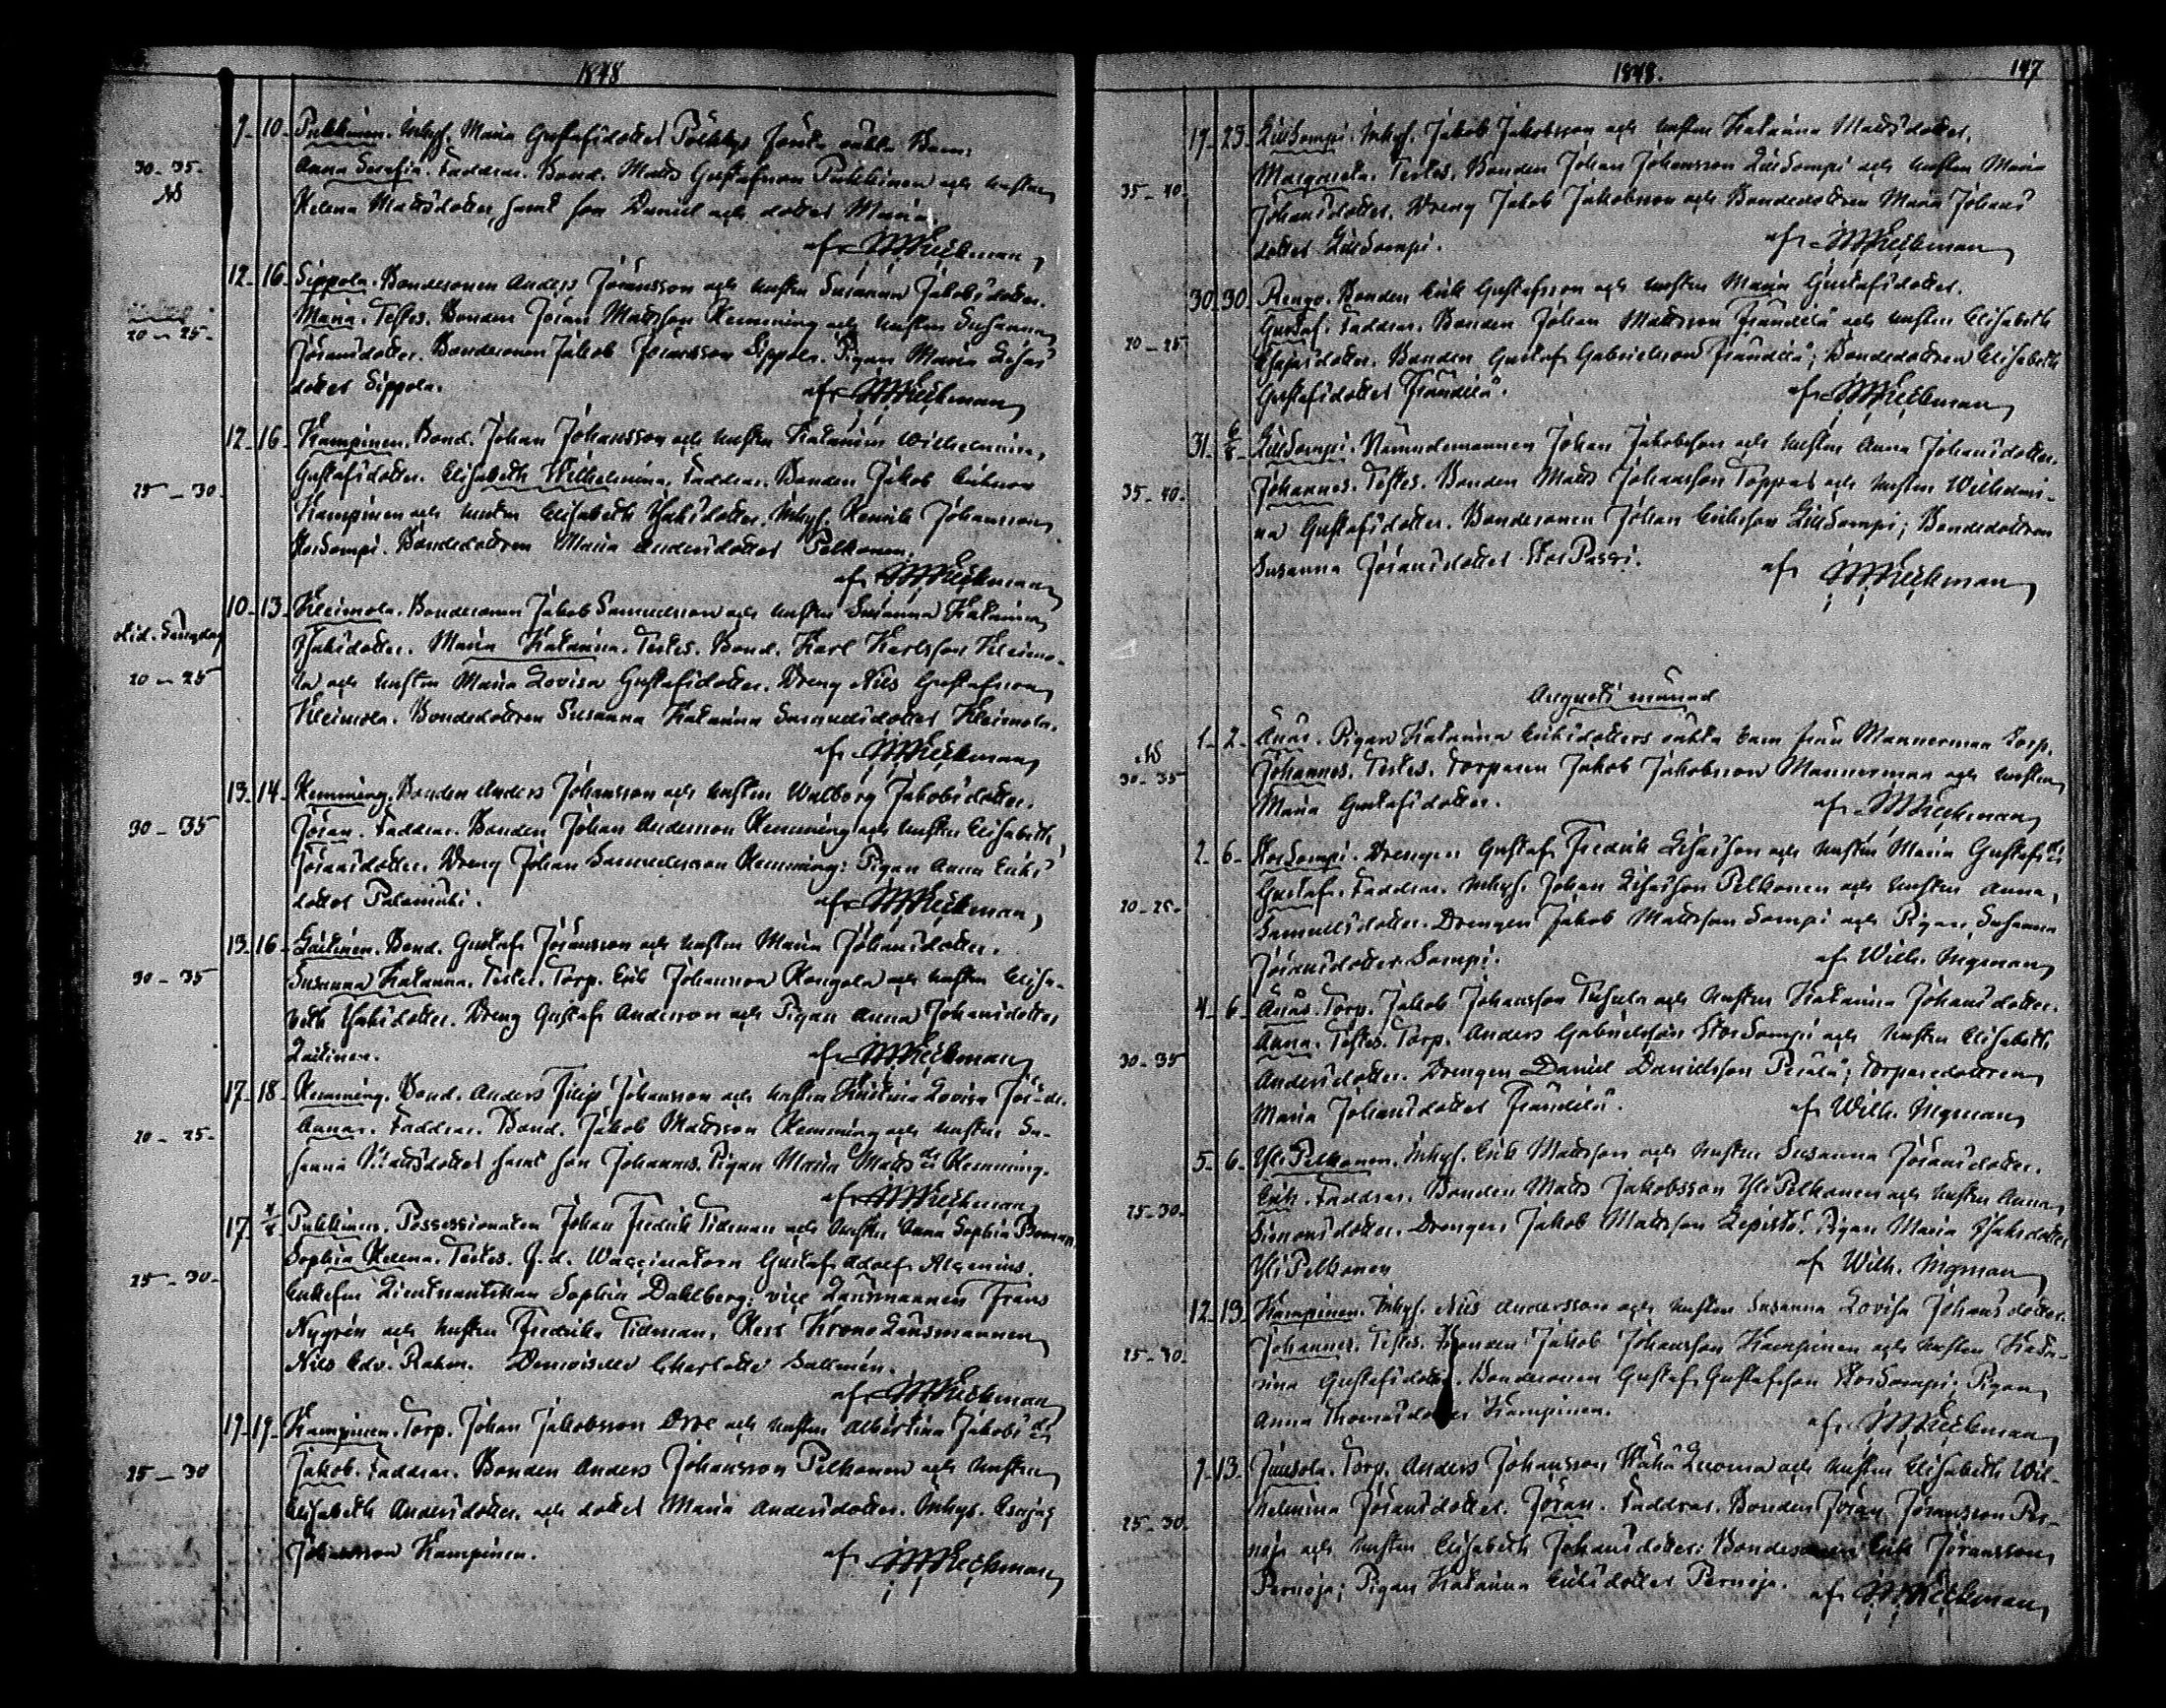 1848
9. 10. Pukkinen. Inhys. Maria Gustafsdotter oäkta Barn:
30-35. Anna Serafia. Faddrar. Bond. Matts Gustafsson Pukkinen och hustru
Helena Mattsdotter samt son Daniel och dotter Maria.
af
12. 16. Sippola. Bondesonen Anders Jöransson och hustru Susanna Jakobsdotter.
Maria. Testes. Bonden Jöran Mattsson Hemming och hustru Susanna
20-25. Jöransdotter. Bondesonen Jakob Jöransson Sippola. Pigan Maria
dotter Sippola.
af
12. 16. Kampinen. Bond. Johan Johansson och hustru Katarina Wilhelmina
25-30. Gustafsdotter. Elisabeth Wilhelmina. Faddrar. Bonden Jakob
Kampinen och hustru Elisabeth Isaksdotter. Inhys. Henrik Johansson
StorSompi. Bondedottren Maria Andersdotter Pelkonen.
af
10. 13. Kleimola. Bondesonen Jakob Samuelsson och hustru Susanna Katarina
Isaksdotter. Maria Katarina. Testes. Bond. Karl Karlsson Kleimo-
20-25 la och hustru Maria Lovisa Gustafsdotter. Dreng Nils Gustafsson
Kleimola. Bondedottren Susanna Katarina Samuelsdotter Kleimola.
af
13. 14. Hemming. Bonden Anders Johansson och hustru Walborg Jakobsdotter.
30-35 Jöran. Faddrar. Bonden Johan Andersson Hemming och hustru Elisabeth
Jöransdotter. Dreng Johan Samuelsson Hemming: Pigan Anna Eriks
dotter Palomäki.
af
13. 16. Laitinen. Bond. Gustaf Jöransson och hustru Maria Johansdotter.
30-35 Susanna Katarina. Testes. Torp. Erik Johansson Kongola och hustru Elisa-
beth Isaksdotter. Dreng Gustaf Andersson och Pigan Anna Johansdotter
Laitinen.
af
17. 18. Hemming. Bond. Anders Filip Johansson och hustru Kristina Lovisa
Annar. Faddrar. Bond. Jakob Mattsson Hemming och hustru Su-
20-25. sanna Mattsdotter samt son Johannes. Pigan Maria Matts dr Hemming.
af
17. Pukkinen. Possessionaten Johan Fredrik Tidman och hustru Anna Sophia
Sophia Helena. Testes. Waccinatorn Gustaf Adolf Algenius.
25-30. Enkefru Sophia Dahlberg: vice Länsmannen Frans
Nygrén och hustru Fredrika Tidman, Herr Krono Länsmannen
Nils Edv. Rahm. Demoiselle Charlotte Sallmén.
af
19. 19. Kampinen. Torp. Johan Jakobsson Orre och hustru Albertina Jakobs dr
25-30 Jakob. Faddrar. Bonden Anders Johansson Pelkonen och hustru
Elisabeth Andersdotter. och dotter Maria Andersdotter. Inhys. Esajas
Johansson Kampinen.
af
1848. 147
19. 23. LillSompi. Inhys. Jakob Jakobsson och hustru Katarina Mattsdotter.
35-40. Margareta. Testes. Bonden Johan Johansson LillSompi och hustru Maria
Johansdotter. Dreng Jakob Jakobsson och Bondedottren Maria Johans
dotter LillSompi.
af
30. 30. Rengo. Bonden Erik Gustafsson och hustru Maria Gustafsdotter.
Gustaf. Faddrar. Bonden Johan Mattsson Frändilä och hustru Elisabeth
20-25 Esajasdotter. Bonden Gustaf Gabrielsson Frändilä; Bondedottren Elisabeth
Gustafsdotter Frändilä.
af
31. LillSompi. Nämndemannen Johan Jakobsson och hustru Anna Johansdotter.
35-40. Johannes. Testes. Bonden Matts Johansson Toppari och hustru Wilhelmi-
na Gustafsdotter. Bondesonen Johan Eriksson LillSompi; Bondedottren
Susanna Jöransdotter StorPassi.
af
Augusti månad
1. 2. Änäs. Pigan Katarina Eriksdotters oäkta barn från Mannerman Torp.
30-35 Johannes. Testes. Torparen Jakob Jakobsson Mannerman och hustru
Maria Gustafsdotter.
af
2. 6. StorSompi. Drengen Gustaf Fredrik och hustru Maria Gustafs dr
Gustaf. Faddrar. Inhys. Johan Pelkonen och hustru Anna
20-25. Samuelsdotter. Drengen Jakob Mattsson Sompi och Pigan Susanna
Jöransdotter Sompi.
af Wilh. Ingman
4. 6. Änäs. Torp. Jakob Johansson och hustru Katarina Johansdotter.
Anna. Testes. Torp. Anders Gabrielsson StorSompi och hustru Elisabeth
30-35 Andersdotter. Drengen Daniel Danielsson Perälä; Torparedottren
Maria Johansdotter Frändilä.
af Wilh. Ingman
5. 6. YliPelkonen. Inhys. Erik Mattsson och hustru Susanna Jöransdotter.
Erik. Faddrar. Bonden Matts Jakobsson YliPelkonen och hustru Anna
25-30. Simonsdotter. Drengen Jakob Mattsson Lepistö. Pigan Maria Isaksdotter
YliPelkonen
af Wilh. Ingman
12. 13. Kampinen. Inhys. Nils Andersson och hustru Susanna Lovisa Johansdotter.
25-30. Johannes. Testes. Bonden Jakob Johansson Kampinen och hustru Kata-
rina Gustafsdotter. Bondesonen Gustaf Gustafsson StorSompi; Pigan
Anna Thomasdotter Kampinen.
af
9. 13. Juusola. Torp. Anders Johansson och hustru Elisabeth Wil-
helmina Jöransdotter. Jöran. Faddrar. Bonden Jöran Jöransson Per-
25-30. noja och hustru Elisabeth Johansdotter: Bondesonen Erik Jöransson
Pernoja; Pigan Katarina Eriksdotter Pernoja.
af